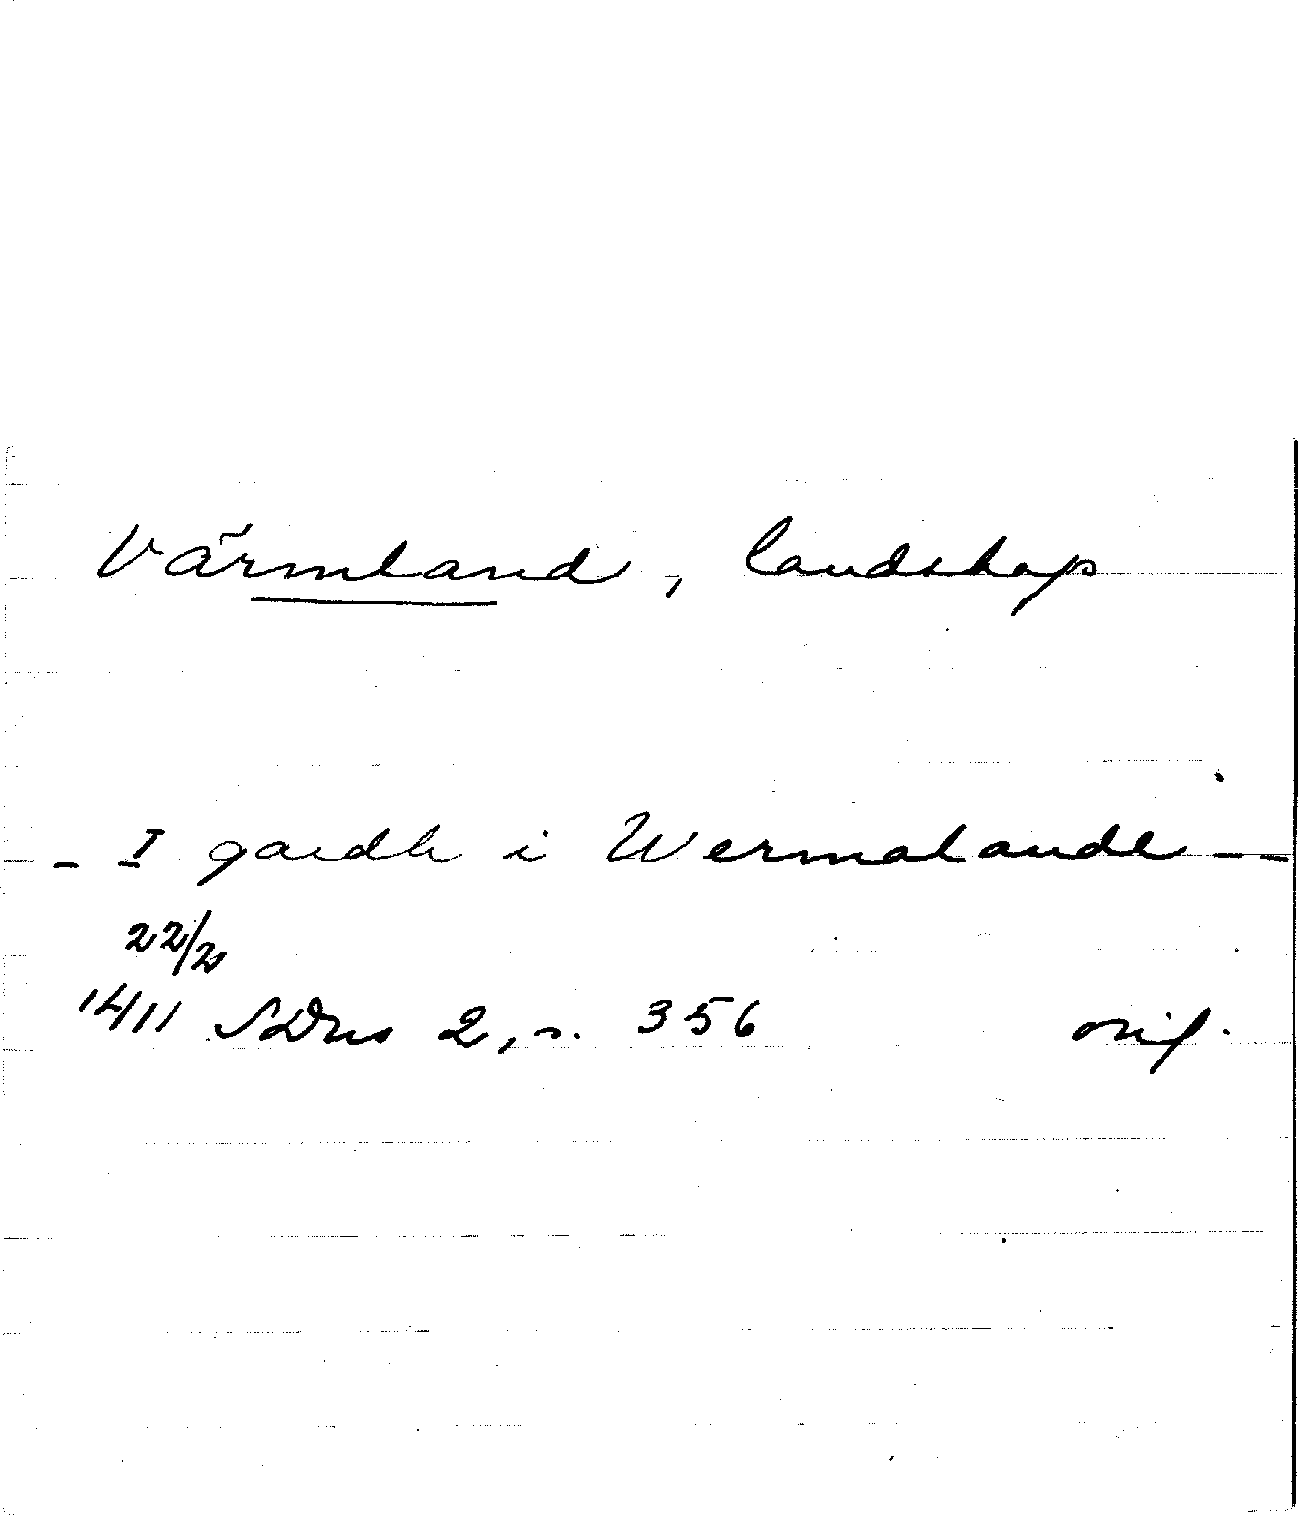 Värmland, landskap
- I gardh i Wermalande - -
22/2
1411 SDns 2, s. 356 orig.